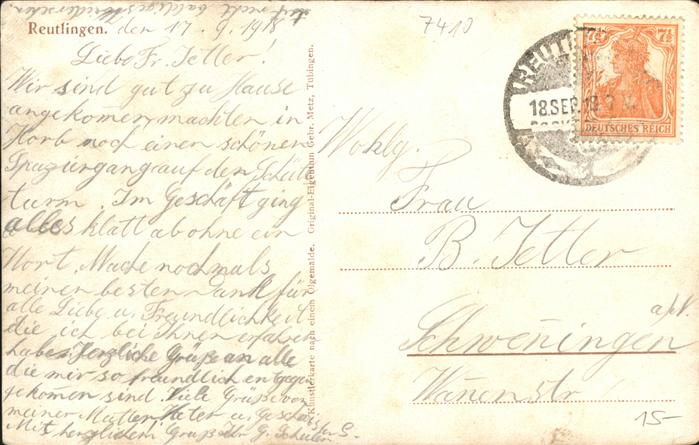 auf recht baldiges Wiedersehen.
Reutlingen. den 17. 9. 1918
Liebe Fr. Jetter!
Wir sind gut zu Hause
angekommen, machten in
Horb noch einen schönen
Spaziergang auf den Schütte
turm. Im Geschäft ging
alles klatt ab ohne ein
Wort. Mache nochmals
meinen besten Dank für
alle Liebe u. Freundlichkeit
die ich bei Ihnen erfahren
habe. Herzliche Grüße an alle
die mir so freundlich entgegen
gekommen sind. Viele Grüße von
meiner Mutter, Vater u. Geschw
Mit herzlichem Gruß Ihr G. Schüler
Künstlerkarte nach einem Ölgemälde. Original-Eigentum Gebr. Metz, Tübingen.
7410
REUTL
18.SEP.18.
7½ 7½
DEUTSCHES REICH
Wohlg.
Frau
B. Jetter
a/N.
Schwenningen
Str.
15-